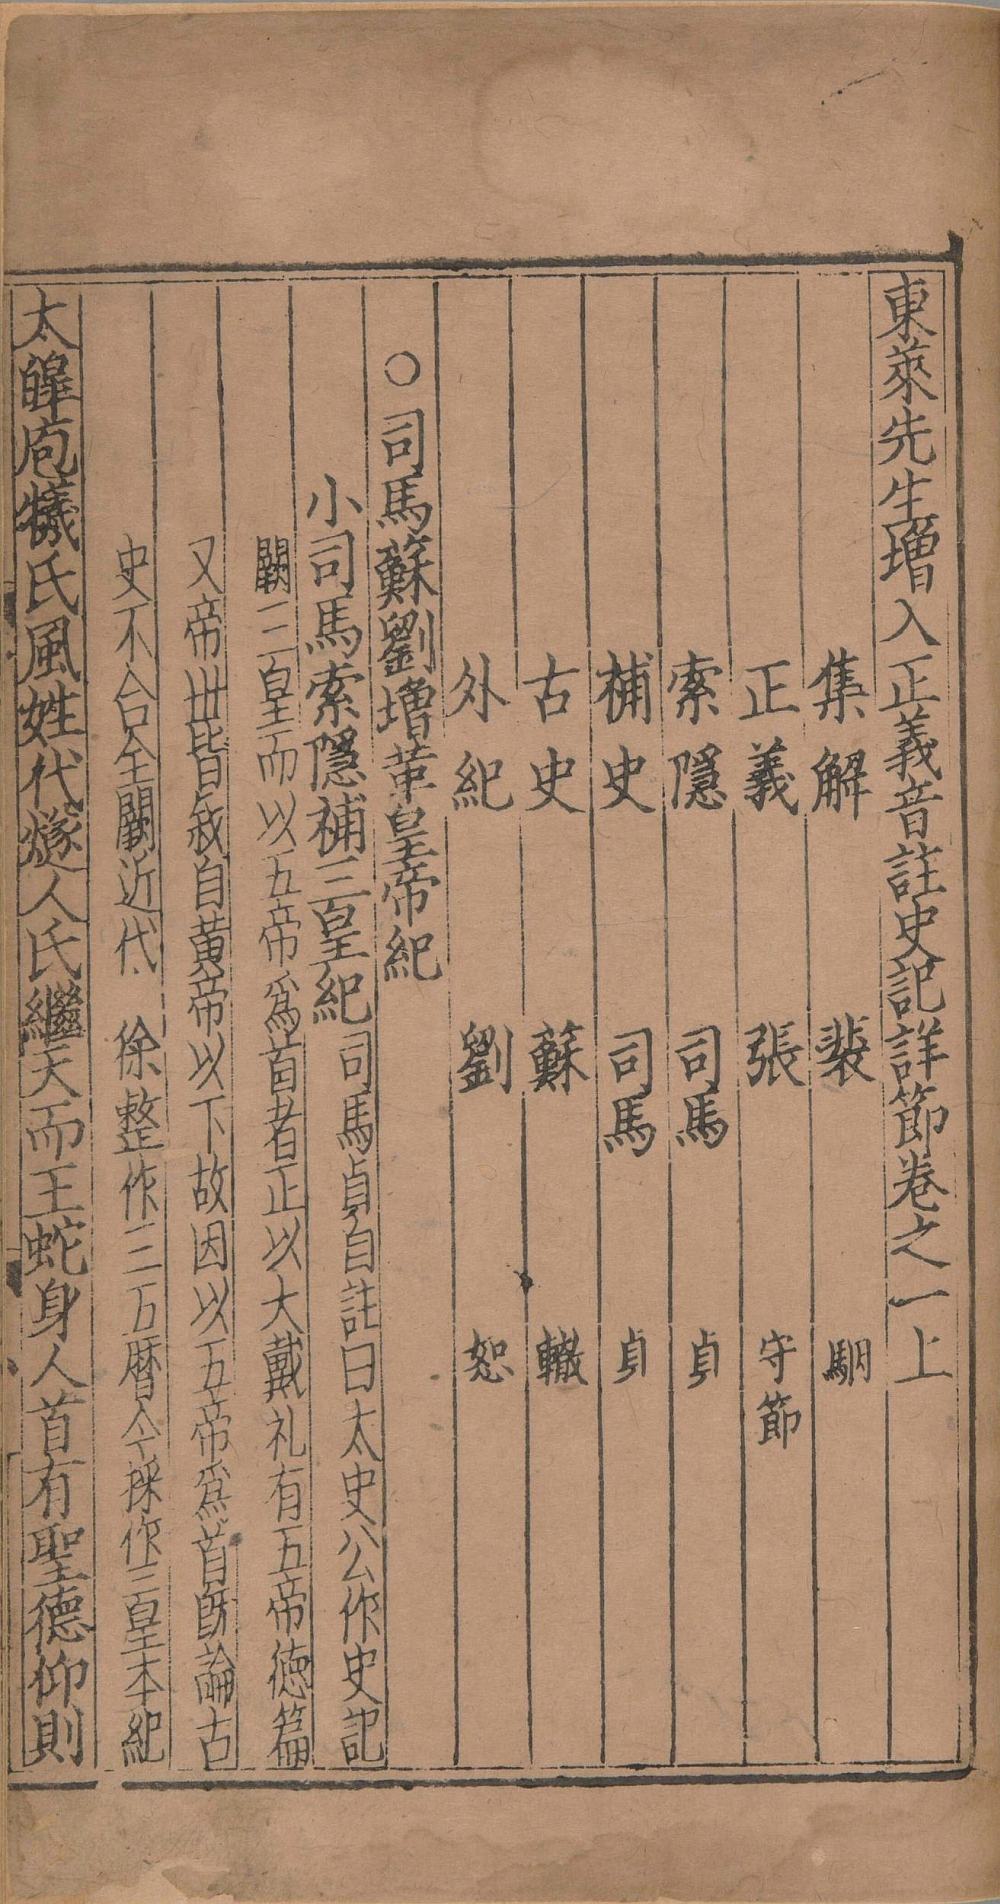 東萊先生增入正義音註史記詳節卷之一上
集解 裴 駰
正義 張 守節
索隱 司馬 貞
補史 司馬 貞
古史 蘇 轍
外紀 劉 恕
○司馬蘇劉增革皇帝紀
小司馬索隱補三皇紀 司馬貞自註曰太史公作史記
闕三皇而以五帝爲首者正以大戴礼有五帝德篇
又帝丗皆敘自黃帝以下故因以五帝爲首旣論古
史不合全闕近代 徐整作三五曆今採作三皇本紀
太皥庖犧氏風姓代燧人氏繼天而王蛇身人首有聖德仰則